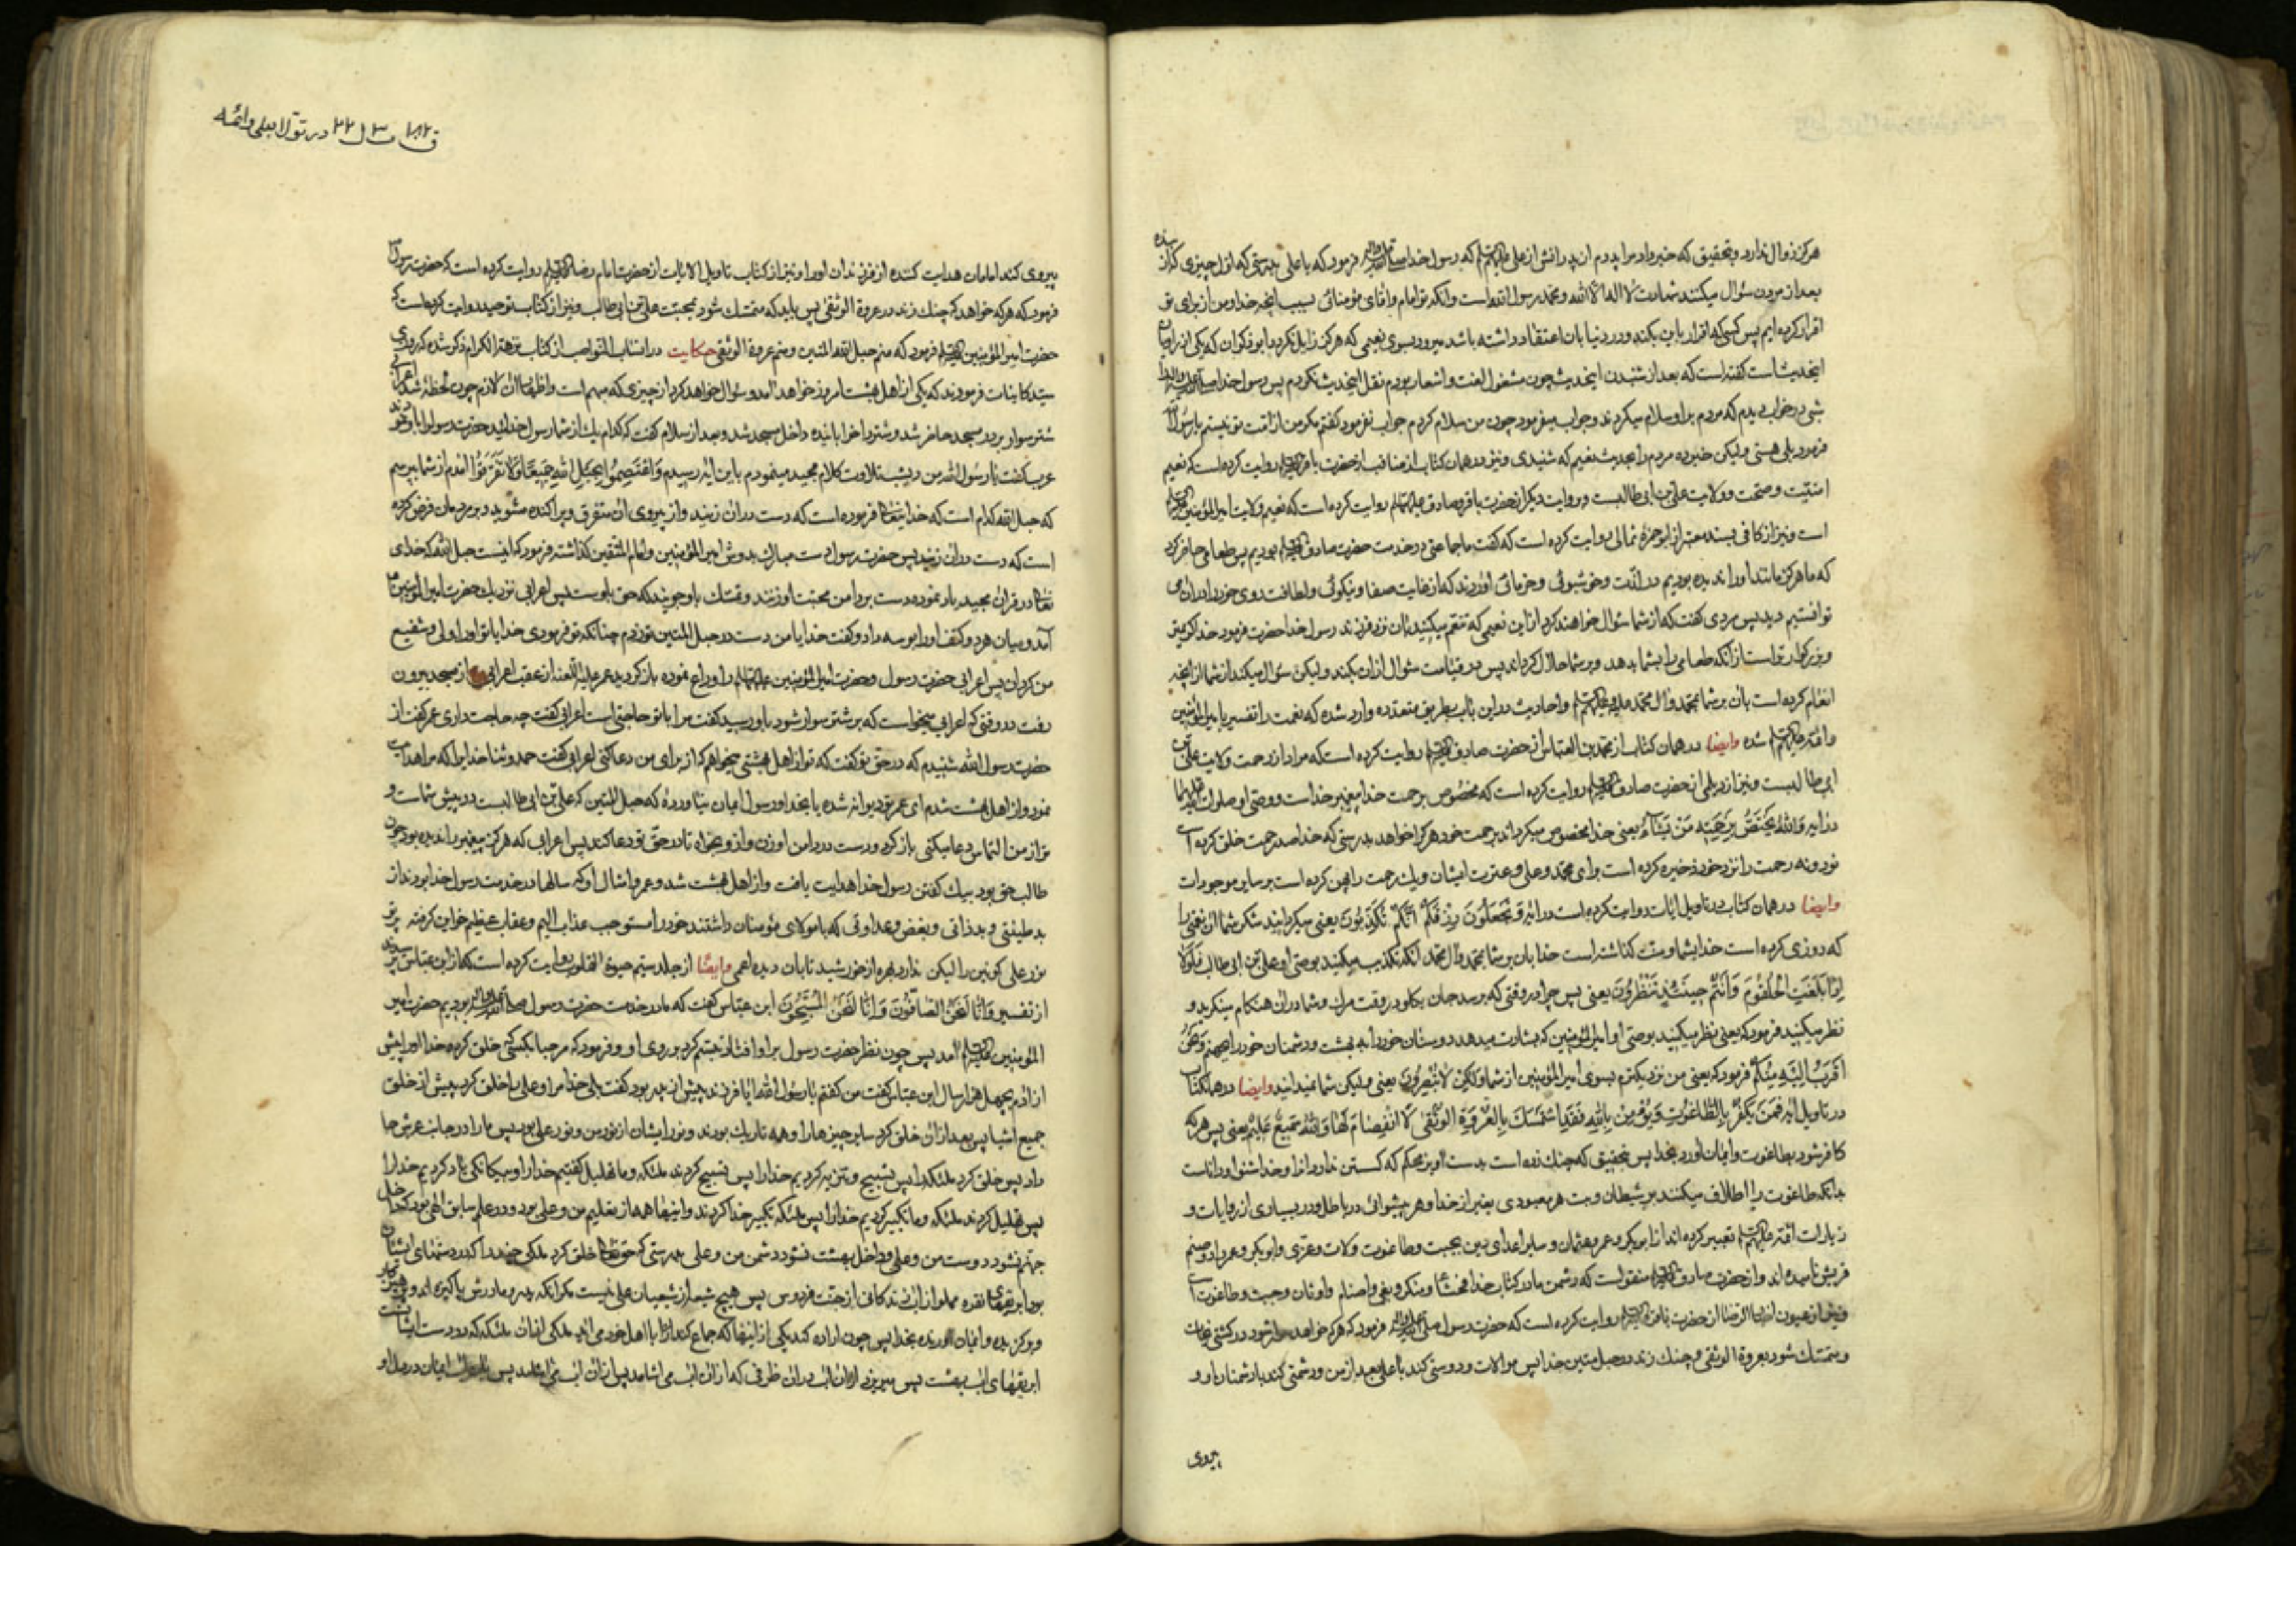 هرکز زوال ندارد وتحقیق که خبر داد مرا پدرم از پدرانش از علی علیهم السلم که رسول خدا صلی الله علیه واله فرمود که یا علی بدرستی که اول چیزی که از بنده
بعد از مردن سؤال میکنند شهادت لا اله الا الله ومحمد رسول الله است وانکه تو امام واقای مؤمنانی بسبب انچه خدا ومن از برای تو
اقرار کرده ایم پس کسی که اقرار باین بکند ودر دنیا بان اعتقاد داشته باشد میرود بسوی نعیمی که هرکز زایل نکردد ابو ذکوان که یکی از راویان
اینحدیث است کفته است که بعد از شنیدن اینحدیث چون مشغول لغت واشعار بودم نقل اینحدیث نکردم پس رسول خدا صلی الله علیه واله را
شبی در خواب دیدم که مردم بر او سلام میکردند وجواب میفرمود چون من سلام کردم جواب نفرمود کفتم مکر من از امت تو نیستم یا رسول الله
فرمود بلی هستی ولیکن خبر ده مردم را بحدیث نعیم که شنیدی ونیز در همان کتاب از مناقب از حضرت باقر علیه السلم روایت کرده است که نعیم
امنیت وصحت وولایت علی بن ابی طالبست وبروایت دیکر از حضرت باقر وصادق علیهما السلم روایت کرده است که نعیم ولایت امیر المؤمنین علیه السلم
است ونیز از کافی بسند معتبر از ابو حمزه ثمالی روایت کرده است که کفت ما جماعتی در خدمت حضرت صادق علیه السلم بودیم پس طعامی حاضر کرد
که ما هرکز مانند او را ندیده بودیم در لذت وخوشبوئی وخرمائی اوردند که از غایت صفا ونیکوئی ولطافت روی خود را در ان می
توانستیم دید پس مردی کفت که از شما سؤال خواهند کرد از این نعیمی که تنعم میکنید بان نزد فرزند رسول خدا حضرت فرمود خدا کریمتر
وبزرکوارتر است از انکه طعامی را بشما بدهد وبر شما حلال کرداند پس در قیامت سؤال از ان بکند ولیکن سؤال میکند از شما از انچه
انعام کرده است بان بر شما بمحمد وال محمد علیه وعلیهم السلم واحادیث در این باب بطریق متعدده وارد شده که نعمت را تفسیر بامیر المؤمنین
وائمه علیهم السلم شده وایضا در همان کتاب از محمد بن العباس از حضرت صادق علیه السلم روایت کرده است که مراد از رحمت ولایت علی بن
ابی طالبست ونیز از دیلمی از حضرت صادق علیه السلم روایت کرده است که مخصوص برحمت خدا پیغمبر خداست ووصی او صلوات الله علیهما
در ایه والله یختص برحمته من یشاء یعنی خدا مخصوص میکرداند برحمت خود هرکرا خواهد بدرستی که خدا صد رحمت خلق کرده است
نود ونه رحمت را نزد خود ذخیره کرده است برای محمد وعلی وعترت ایشان ویک رحمت را پهن کرده است بر سایر موجودات
وایضا در همان کتاب در تاویل ایات روایت کرده است در ایه وتجعلون رزقکم انکم تکذبون یعنی میکردانید شکر شما ان نعمتی را
که روزی کرده است خدا بشما ومنت کذاشته است خدا بان بر شما بمحمد وال محمد انکه تکذیب میکنید بوصی او علی بن ابی طالب فلولا
اذا بلغت الحلقوم وانتم حینئذ تنظرون یعنی پس چرا در وقتی که برسد جان بکلو در وقت مرک وشما در ان هنکام مینکرید و
نظر میکنید فرمود که یعنی نظر میکنید بوصی او امیر المؤمنین که بشارت میدهد دوستان خود را به بهشت ودشمنان خود را بجهنم ونحن
اقرب الیه منکم فرمود که یعنی من نزدیکترم بسوی امیر المؤمنین از شما ولکن لا تبصرون یعنی ولیکن شما نمیدانید وایضا در همان کتاب
در تاویل ایه فمن یکفر بالطاغوت ویؤمن بالله فقد استمسک بالعروة الوثقی لا انفصام لها والله سمیع علیم یعنی پس هر که
کافر شود بطاغوت وایمان اورد بخدا پس بتحقیق که چنک زده است بدست اویز محکم که کسستن ندارد انرا وخدا شنوا وداناست
بدانکه طاغوت را اطلاق میکنند بر شیطان وبت وهر معبودی بغیر از خدا وهر پیشوائی در باطل ودر بسیاری از روایات و
زیارات ائمه علیهم السلم تعبیر کرده اند از ابوبکر وعمر وعثمان وسایر اعدای دین بجبت وطاغوت ولات وعزی وابوبکر وعمر را دو صنم
قریش نامیده اند واز حضرت صادق علیه السلم منقول است که دشمن ما در کتاب خدا فحشا ومنکر وبغی واصنام واوثان وجبت وطاغوت است
ونیز از عیون اخبار الرضا از حضرت باقر علیه السلم روایت کرده است که حضرت رسول صلی الله علیه واله فرمود که هرکه خواهد سوار شود در کشتی نجات
ومتمسک شود بعروة الوثقی وچنک زند در حبل متین خدا پس موالات ودوستی کند با علی بعد از من ودشمنی کند با دشمنان او و
پیروی
در تولا بعلی وائمه
پیروی کند امامان هدایت کننده از فرزندان او را ونیز از کتاب تاویل الایات از حضرت امام رضا علیه السلم روایت کرده است که حضرت رسول
فرمود که هر که خواهد که چنک زند در عروة الوثقی پس باید که متمسک شود بمحبت علی بن ابی طالب ونیز از کتاب توحید روایت کرده است که
حضرت امیر المؤمنین علیه السلم فرمود که منم حبل الله المتین ومنم عروة الوثقی حکایت در انساب النواصب از کتاب نزهة الکرام ذکر شده که روزی
سید کاینات فرمودند که یکی از اهل بهشت امروز خواهد امد وسؤال خواهد کرد از چیزی که مهم است واظهار ان لازم چون لحظه شد اعرابی
شتر سوار بر در مسجد حاضر شد وشتر را خوابانیده داخل مسجد شد وبعد از سلام کفت که کدام یک از شما رسول خدائید حضرت رسول را باو نمودند
عرب کفت یا رسول الله من دیشب تلاوت کلام مجید مینمودم باین ایه رسیدم واعتصموا بحبل الله جمیعا ولا تفرقوا امدم از شما بپرسم
که حبل الله کدام است که خدایتعالی فرموده است که دست در ان زنید واز پیروی ان متفرق وپراکنده مشوید وبر مردمان فرض کرده
است که دست در ان زنید پس حضرت رسول دست مبارک بدوش امیر المؤمنین وامام المتقین کذاشته فرمود که اینست حبل الله که خدای
تعالی در قران مجید یاد نموده دست بر دامن محبت او زنند وتمسک باو جویند که حق با اوست پس اعرابی نزدیک حضرت امیر المؤمنین
آمد ومیان هر دو کتف او را بوسه داد وکفت خدایا من دست در حبل المتین تو زدم چنانکه تو فرمودی خدایا تو او را ولی وشفیع
من کردان پس اعرابی حضرت رسول وحضرت امیر المؤمنین علیهما السلم را وداع نموده باز کردید عمر علیه اللعنه از عقب اعرابی از مسجد بیرون
رفت در وقتی که اعرابی میخواست که بر شتر سوار شود باو رسید کفت مرا با تو حاجتی است اعرابی کفت چه حاجت داری عمر کفت از
حضرت رسول الله شنیدم که در حق تو کفت که تو از اهل بهشتی میخواهم که از برای من دعا کنی اعرابی کفت حمد وثنا خدایرا که مرا هدایت
نمود واز اهل بهشت شدم ای عمر تو دیوانه شده یا بخدا ورسول ایمان نیاورده که حبل المتین که علی بن ابی طالبست در پیش شماست و
تو از من التماس دعا میکنی باز کرد ودست در دامن او زن واز او بخواه تا در حق تو دعا کند پس اعرابی که هرکز پیغمبر را ندیده بود چون
طالب حق بود بیک کفتن رسول خدا هدایت یافت واز اهل بهشت شد وعمر وامثال او که سالها در خدمت رسول خدا بودند از
بد طینتی وبد ذاتی وبغض وعداوتی که با مولای مؤمنان داشتند خود را مستوجب عذاب الیم وعقاب عظیم
نور علی کونین را لیکن ندارد بهره از خورشید تابان دیده اعمی وایضا از جلد سیم حیوة القلوب روایت کرده است که از ابن عباس پرسیدند
از تفسیر وانا لنحن الصافون وانا لنحن المسبحون ابن عباس کفت که ما در خدمت حضرت رسول صلی الله علیه واله بودیم حضرت امیر
المؤمنین علیه السلم امد پس چون نظر حضرت رسول بر او افتاد تبسم کرد بروی او وفرمود که مرحبا بکسی که خلق کرده خدا او را پیش
از ادم بچهل هزار سال ابن عباس کفت من کفتم یا رسول الله ایا فرزند پیش از پدر بود کفت بلی خدا مرا وعلی را خلق کرد پیش از خلق
جمیع اشیا پس بعد از ان خلق کرد سایر چیزها را وهمه تاریک بودند ونور ایشان از نور من ونور علی بود پس ما را در جانب عرش جا
داد پس خلق کرد ملئکه را پس تسبیح وتنزیه کردیم خدا را پس تسبیح کردند ملئکه وما تهلیل کفتیم خدا را وبیکانکی یاد کردیم خدا را
پس تهلیل کردند ملئکه وما تکبیر کردیم خدا را پس ملئکه تکبیر خدا کردند واینها همه از تعلیم من وعلی بود ودر علم سابق الهی بود که داخل
جهنم نشود دوست من وعلی وداخل بهشت نشود دشمن من وعلی بدرستی که حق تعالی خلق کرد ملکی چند را که در دستهای ایشان
بود ابریقهای نقره مملو از اب زندکانی از جنت فردوس پس هیچ شیعه از شیعیان علی نیست مکر انکه پدر ومادرش پاکیزه اند وپرهیزکار
وبرکزیده وایمان اورنده بخدا پس چون اراده کند یکی از اینها که جماع کند با اهل خود می اید ملکی از ان ملئکه که در دست ایشانست
ابریقهای اب بهشت پس میریزد از ان اب در ان ظرفی که از ان اب می اشامد پس از ان اب می اشامد پس ایمان در دل او